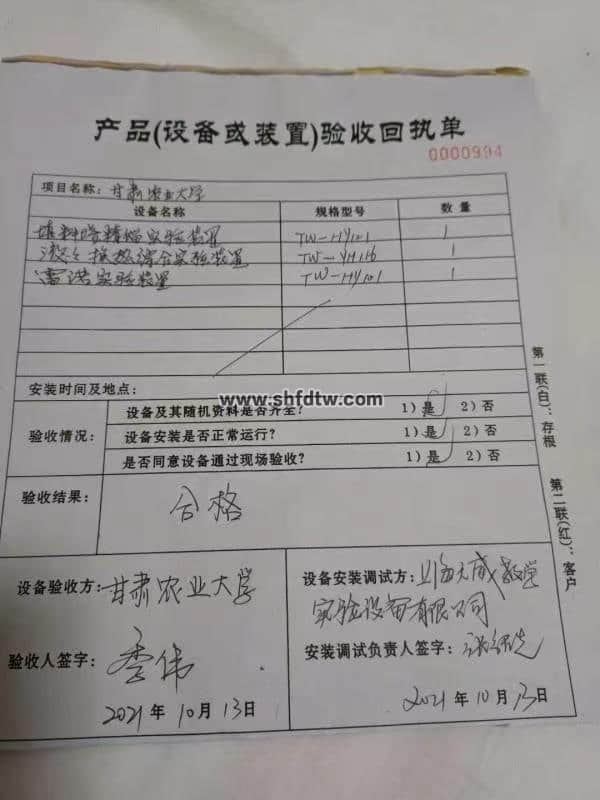 产品(设备或装置)验收回执单
0000994
项目名称: 甘肃农业大学
设备名称 规格型号 数量
填料塔精馏实验装置 TW-HY121 1
TW-YH116 1
雷诺实验装置 TW-HY101 1
安装时间及地点:
www.shfdtw.com
验收情况:
设备及其随机资料是否齐全? 1)是 2)否
设备安装是否正常运行? 1)是 2)否
是否同意设备通过现场验收? 1)是 2)否
验收结果: 合格
设备验收方: 甘肃农业大学
验收人签字: 李伟
2021年10月13日
设备安装调试方: 上海大成教学
实验设备有限公司
安装调试负责人签字:
2021年10月13日
第一联(白): 存根
第二联(红): 客户